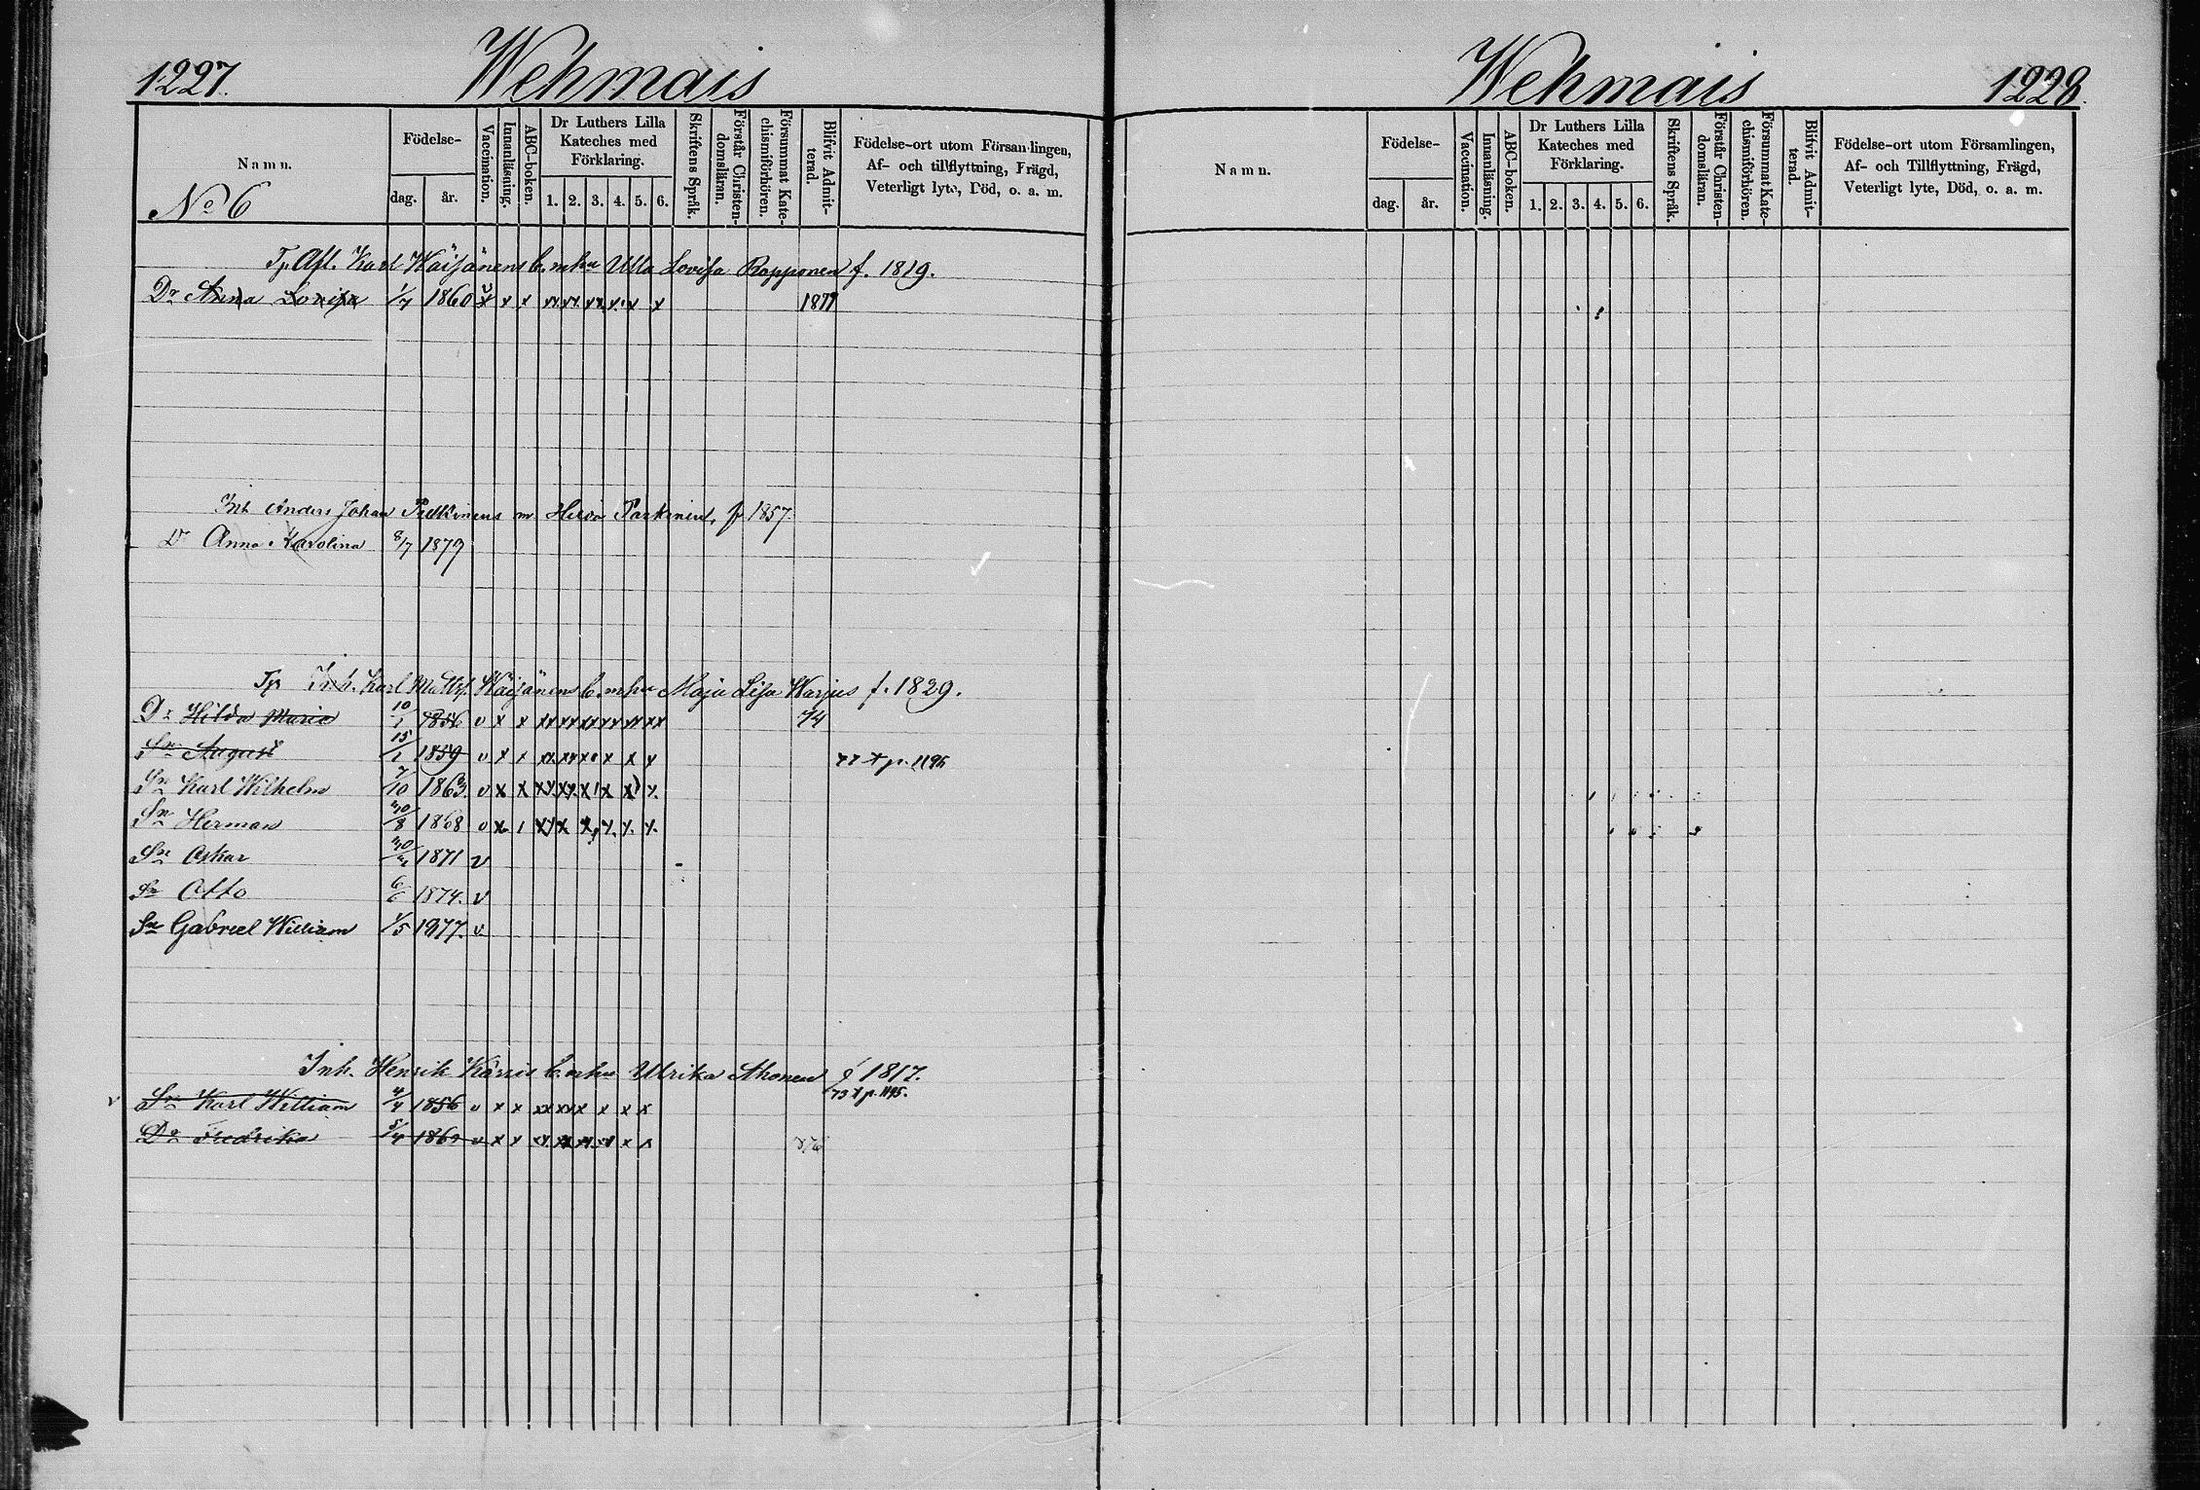 1227. Wehmais
Namn. Födelse- dag. år. Vaccination. Innanläsning. ABC-boken. Dr Luthers Lilla Kateches med Förklaring. 1. 2. 3. 4. 5. 6. Skriftens Språk. Förstår Christen-domsläran. Försummat Kate-chismiförhören. Blifvit Admit-terad. Födelse-ort utom Församlingen, Af- och tillflyttning, Frägd, Veterligt lyte, Död, o. a. m.
No 6
Tp. Afl. Karl Wäisänens b. m hu Ulla Lovisa Rapponen f. 1819.
Dr Anna Lovisa 1/7 1860 v x x x xx xx xx x x x 1877
Inh Anders Johan m Parkinen, f 1857
Dr Anna Karolina 8/7 1879
Tp Inh. Karl Matts. Wäisänens b. m hu Maja Lisa Warjus f. 1829.
Dr Hilda Maria 10/1 1856 v x x xx xx xx xx xx xx 74
Sn August 15/1 1859 v x x xx xx x x x x 77 p. 1195
Sn Karl Wilhelm 7/10 1863. v x x xx xx x x x x
Sn Herman 30/8 1868 v x x xx x x x x x
Sn Oskar 1871 v
Sn Otto 6/6 1874. v
Sn Gabriel William 1/5 1877. v
Inh. Henrik b. m hu Ulrika Ahonen f 1817.
Sn Karl William 4/4 1856 v x x xx xx x x x x 73 p. 1195.
Dr Fredrika 5/4 v x x xx xx xx xx x x
Wehmais 1228.
Namn. Födelse- dag. år. Vaccination. Innanläsning. ABC-boken. Dr Luthers Lilla Kateches med Förklaring. 1. 2. 3. 4. 5. 6. Skriftens Språk. Förstår Christen-domsläran. Försummat Kate-chismiförhören. Blifvit Admit-terad. Födelse-ort utom Församlingen, Af- och Tillflyttning, Frägd, Veterligt lyte, Död, o. a. m.